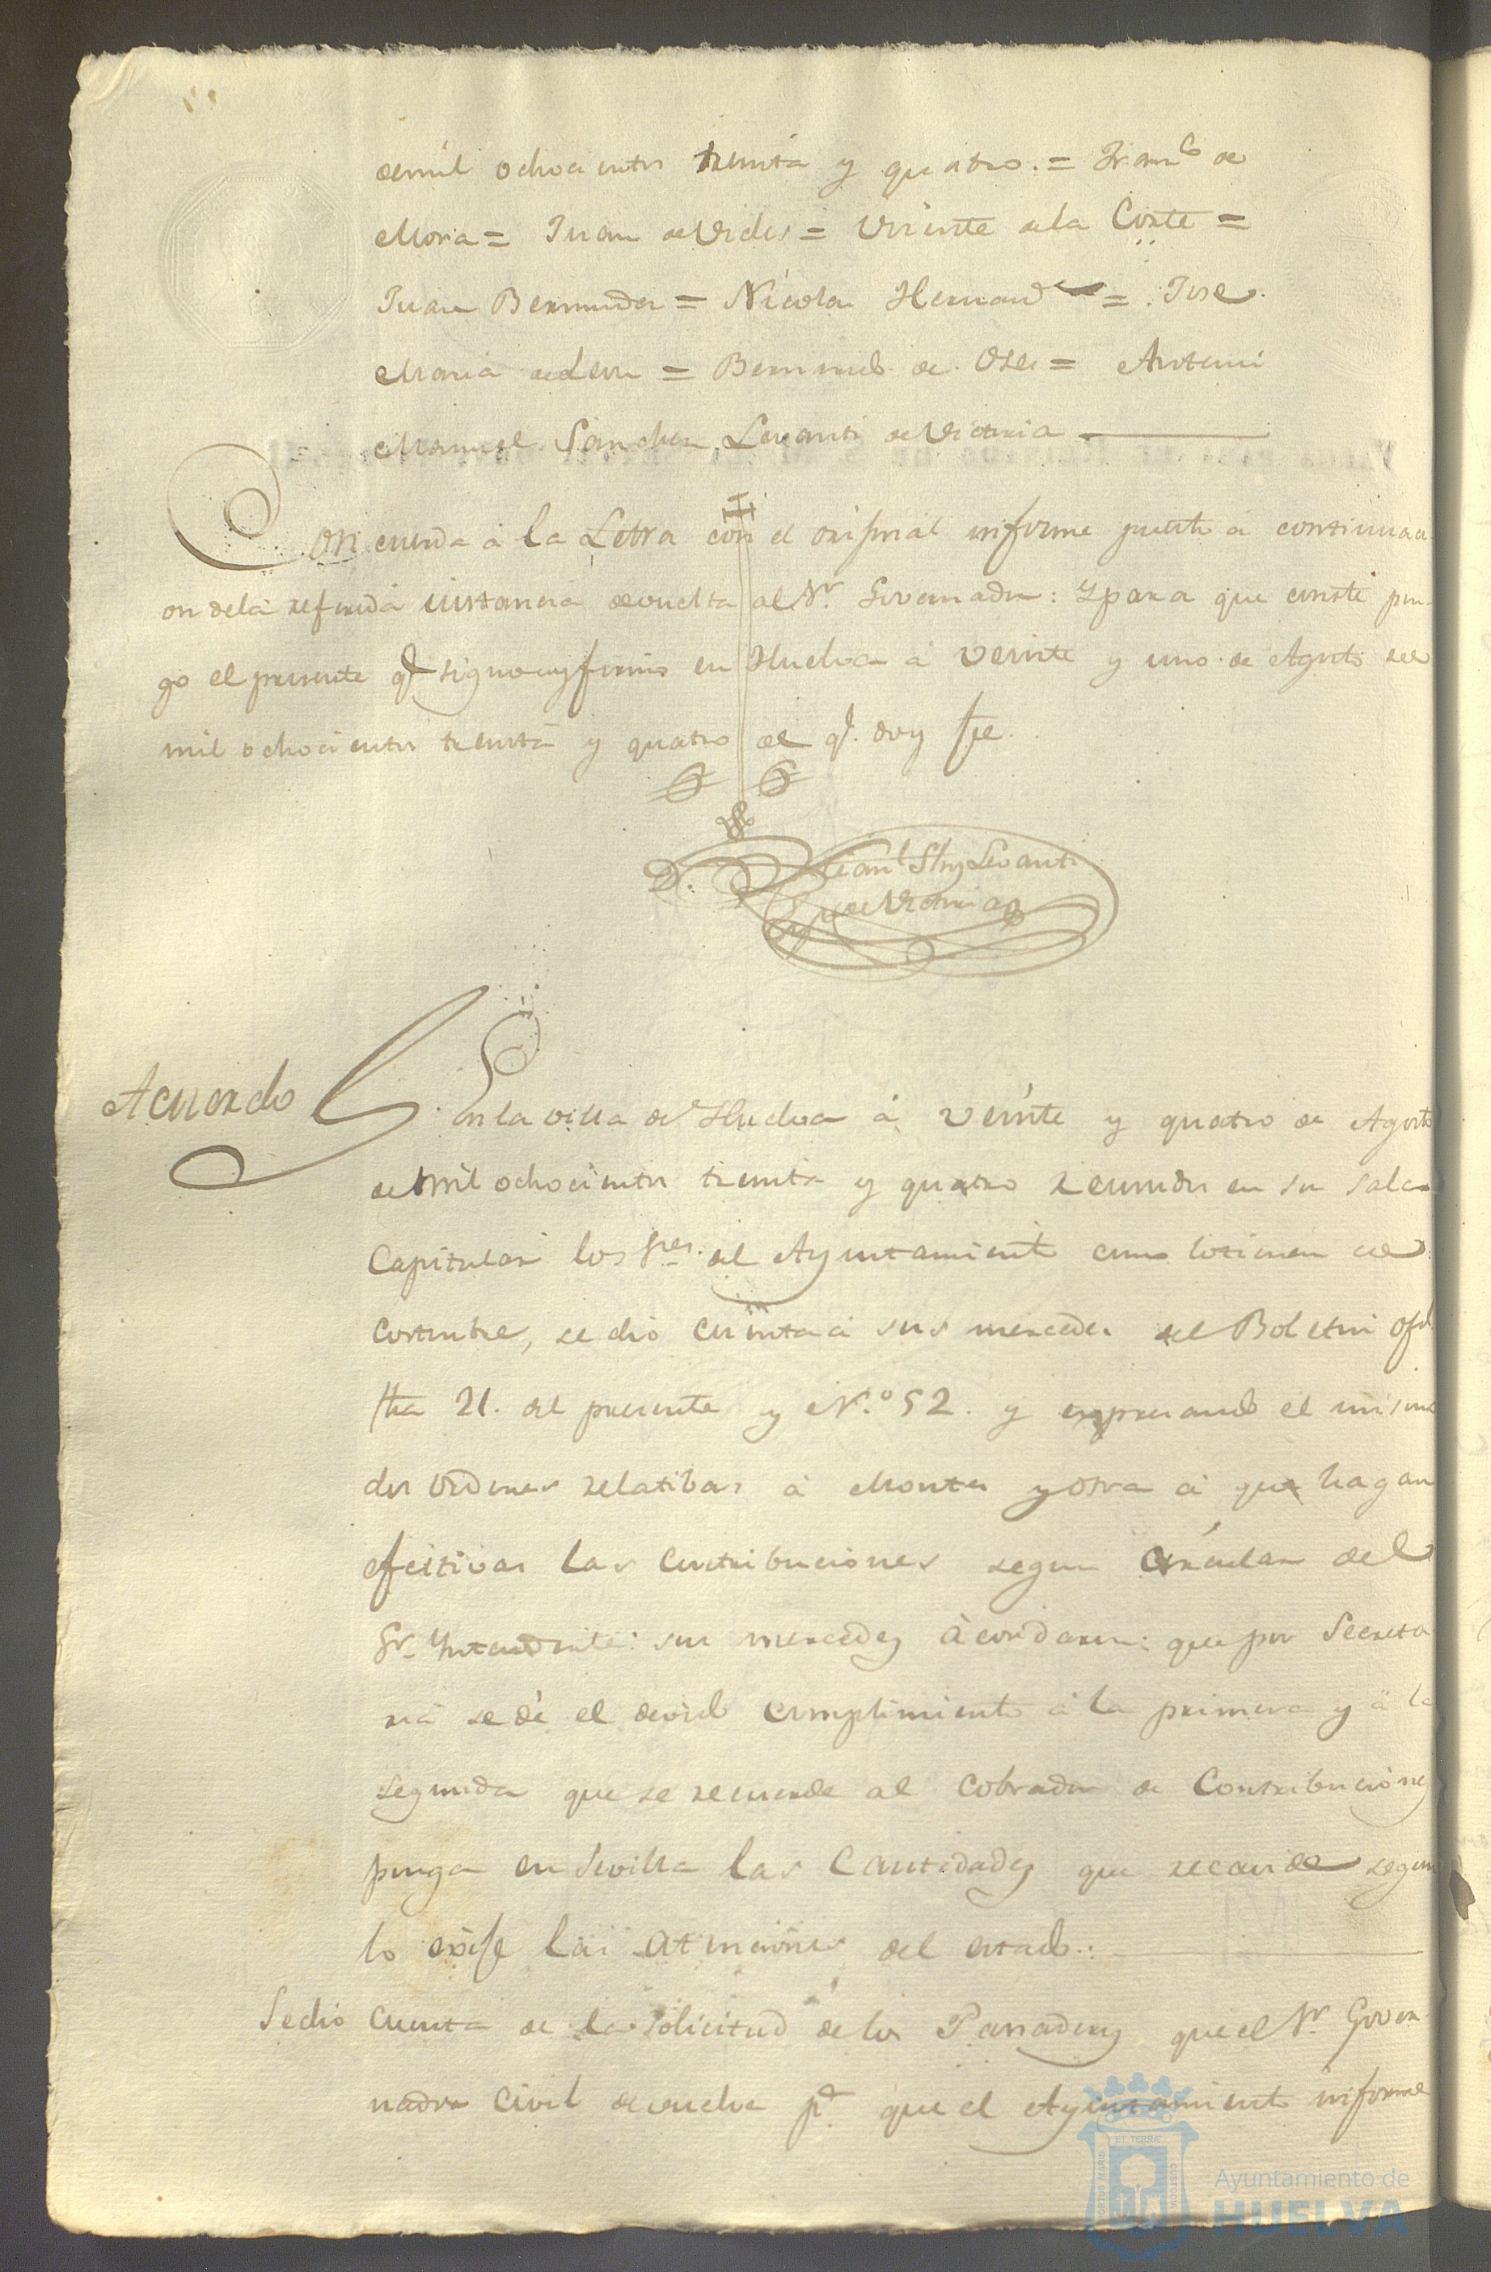 de mil ochocientos treinta y quatro. = Franco de
Mora = Juan de Vides = Vicente de la Corte =
Juan Bermudez = Nicolas Hernandez = Jose
Maria de Leon = Bernardo de = Antonio
Manuel Sanchez Levanti de Victoria
Concuerda á la Letra con el original informe puesto á continuaci
on de la referida instancia devuelta al Sr. Governador: y para que conste pon-
go el presente q signo y firmo en Huelva á veinte y uno de Agosto de
mil ochocientos treinta y quatro de q. doy fee.
Manl Shz Levanti
de Victoria
Acuerdo
En la villa de Huelva á veinte y quatro de Agosto
de mil ochocientos treinta y quatro reunidos en su sala
Capitular los Sres. del Ayuntamiento como lo tienen de
costumbre, se dio cuenta á sus mercedes del Boletin ofl.
fha 21. del presente y N.º 52. y expresando el mismo
dos ordenes relatibas á Montes y otra á que hagan
efectivas las contribuciones segun circular del
Sr. Yntendente: sus mercedes acordaron: que por Secreta
ria se dé el devido cumplimiento á la primera y á la
segunda que se recuerde al Cobrador de Contribuciones
ponga en Sevilla las Cantidades que recaude segun
lo exige las atenciones del estado:
Se dio cuenta de la solicitud de los Panaderos que el Sr. Gover
nador Civil devuelve pa. que el Ayuntamiento informe
PORTUS MARIS
ET TERRÆ
CUSTODIA
Ayuntamiento de
HUELVA